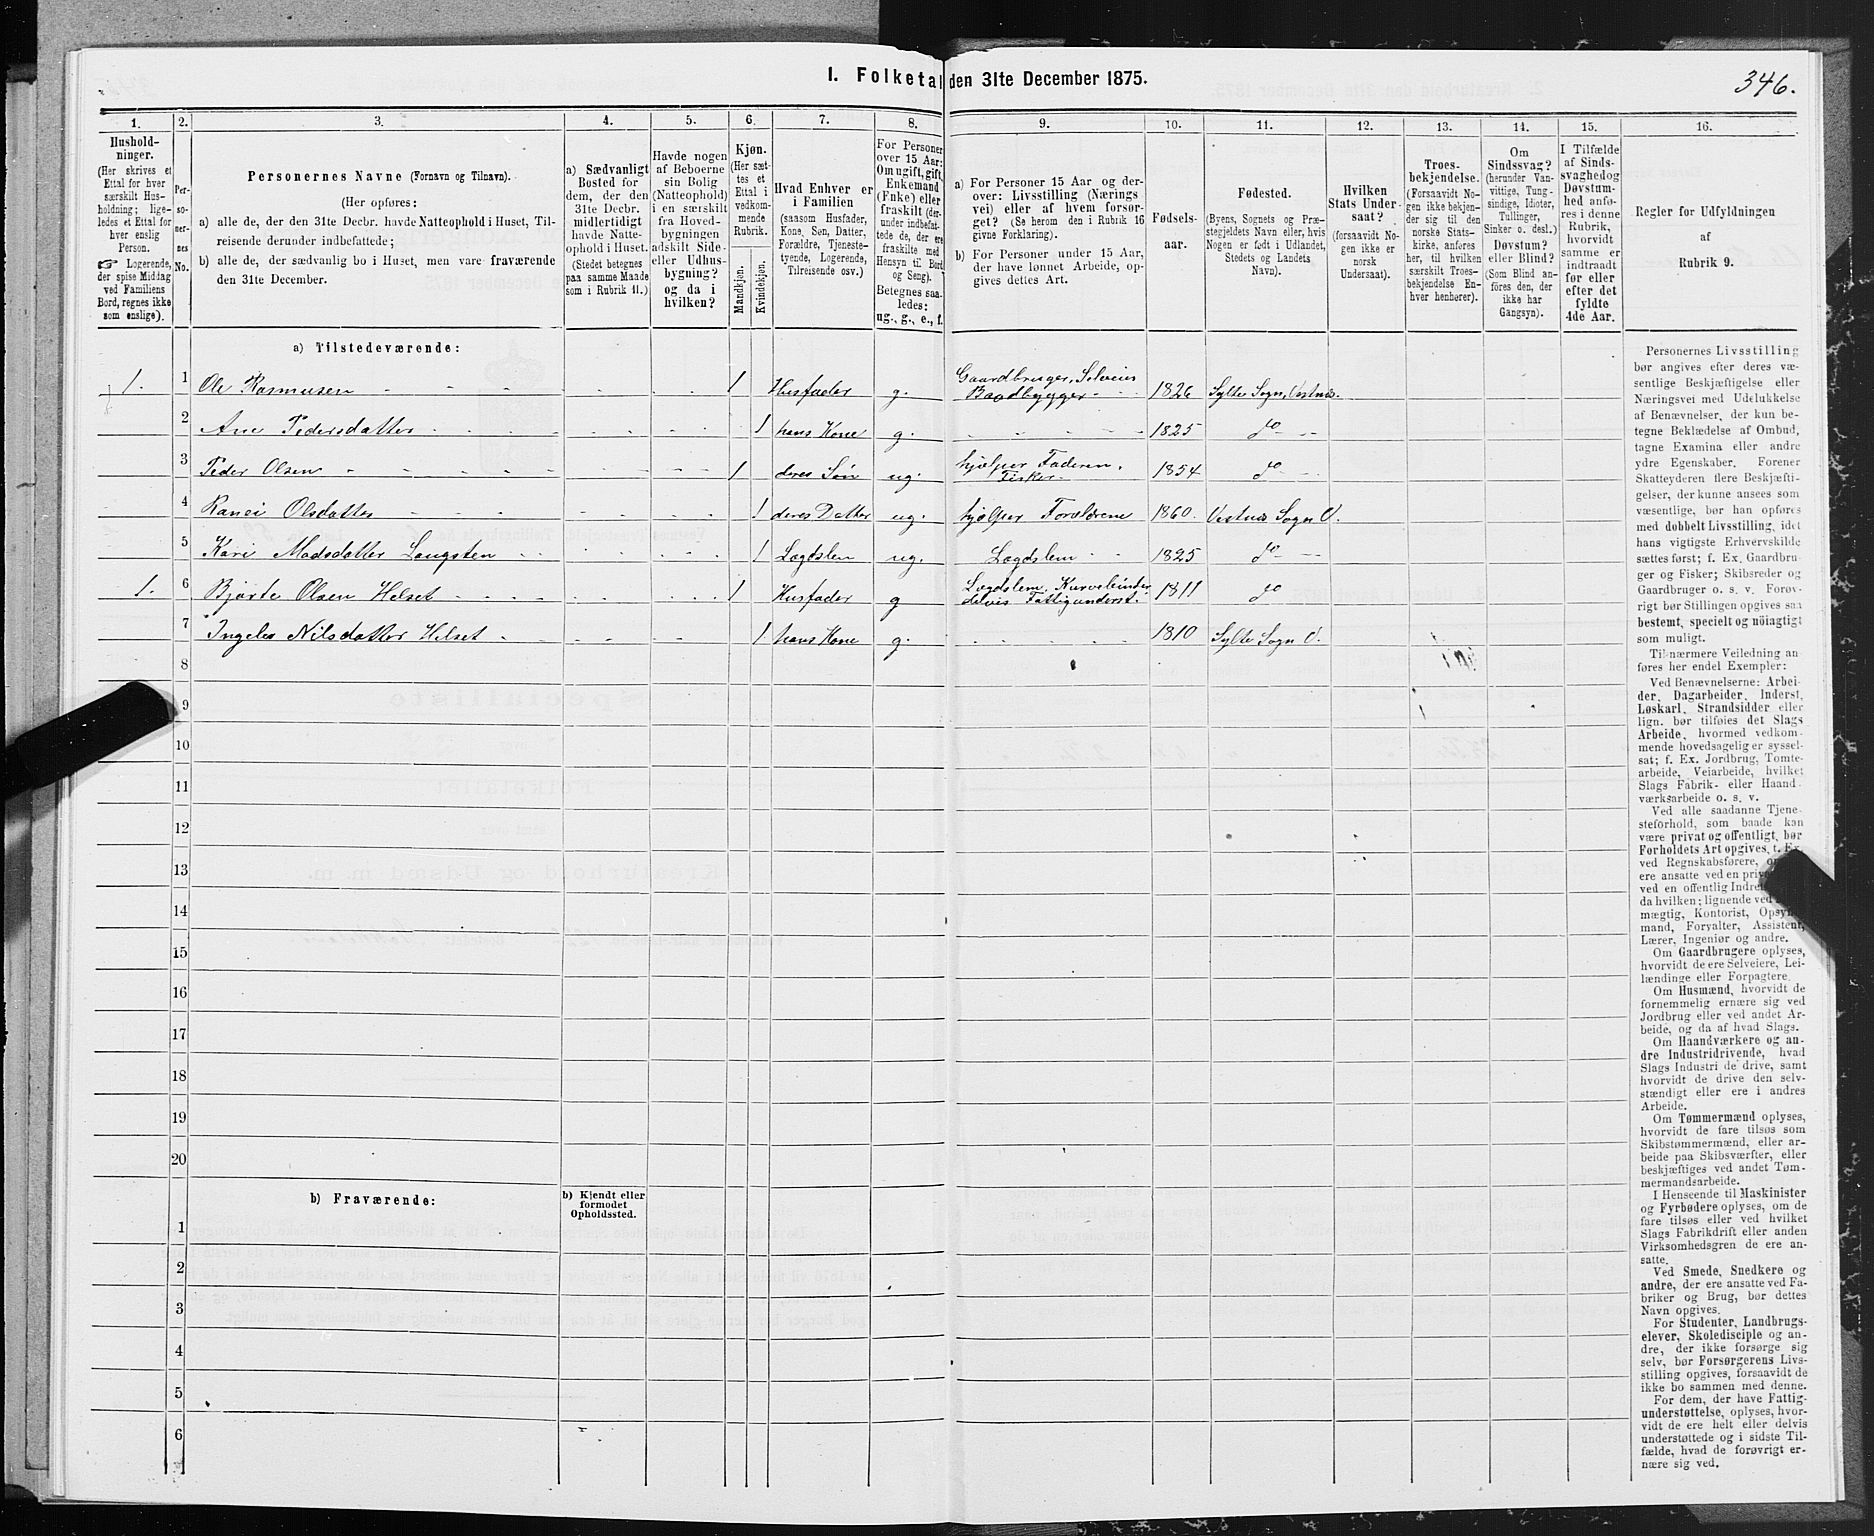 I. Folketal den 31te December 1875.
346.
1.
2.
3.
4.
5.
6.
7.
8.
9.
10.
11.
12.
13.
14.
15.
16.
Hushold-
ninger.
(Her skrives et
Ettal for hver
særskilt Hus-
holdning; lige-
ledes et Ettal for
hver enslig
Person.
☞ Logerende,
der spise Middag
ved Familiens
Bord, regnes ikke
som enslige).
Per-
so-
ner-
nes
No.
Personernes Navne (Fornavn og Tilnavn).
(Her opføres:
a) alle de, der den 31te Decbr. havde Natteophold i Huset, Til-
reisende derunder indbefattede;
b) alle de, der sædvanlig bo i Huset, men vare fraværende
den 31te December.
a) Sædvanligt
Bosted for
dem, der den
31te Decbr.
midlertidigt
havde Natte-
ophold i Huset.
(Stedet betegnes
paa samme Maade
som i Rubrik 11.)
Havde nogen
af Beboerne
sin Bolig
(Natteophold)
i en særskilt
fra Hoved-
bygningen
adskilt Side-
eller Udhus-
bygning?
og da i
hvilken?
Kjøn.
(Her sæt-
tes et
Ettal i
vedkom-
mende
Rubrik.
Mandkjøn.
Kvindekjøn.
Hvad Enhver er
i Familien
(saasom Husfader,
Kone, Søn, Datter,
Forældre, Tjeneste-
tyende, Logerende,
Tilreisende osv.)
For Personer
over 15 Aar:
Om ugift, gift,
Enkemand
(Enke) eller
fraskilt (der-
under indbefat-
tede de, der ere
fraskilte med
Hensyn til Bord
og Seng).
Betegnes saa-
ledes:
ug., g., e., f.
a) For Personer 15 Aar og der-
over: Livsstilling (Nærings
vei) eller af hvem forsør-
get? (Se herom den i Rubrik 16
givne Forklaring).
b) For Personer under 15 Aar,
der have lønnet Arbeide, op-
gives dettes Art.
Fødsels-
aar.
Fødested.
(Byens, Sognets og Præ-
stegjeldets Navn eller, hvis
Nogen er født i Udlandet,
Stedets og Landets
Navn).
Hvilken
Stats Under-
saat?
(forsaavidt No-
gen ikke er
norsk
Undersaat).
Troes-
bekjendelse.
(Forsaavidt No-
gen ikke bekjen-
der sig til den
norske Stats-
kirke, anføres
her, til hvilken
særskilt Troes-
bekjendelse En-
hver henhører).
Om
Sindssvag?
(herunder Van-
vittige, Tung-
sindige, Idioter,
Tullinger,
Sinker o. desl.)
Døvstum?
eller Blind?
(Som Blind an-
føres den, der
ikke har
Gangsyn).
I Tilfælde
af Sinds-
svaghed og
Døvstum-
hed anfø-
res i denne
Rubrik,
hvorvidt
samme er
indtraadt
før eller
efter det
fyldte
4de Aar.
Regler for Udfyldningen
af
Rubrik 9.
a) Tilstedeværende:
1. 1 Ole Rasmusen 1 Husfader g. Gaardbruger, Seleveier Baadbygger 1826 Sylte Sogn, Vestnæs.
2 Ane Pedersdatter 1 hans Kone g. 1825 do
3 Peder Olsen 1 deres Søn ug. hjælper Faderen, Fisker 1854 do
4 Ranei Olsdatter 1 deres Datter ug. hjælper Forældrene 1860. Vestnæs Sogn V.
5 Kari Madsdatter Langsten 1 Lægdslem ug. Lægdslem 1825 do
1. 6 Bjørte Olsen Helset 1 Husfader g Lægdslem, Kurvebinder delvis Fattigunderst. 1811 do
7 Ingeleo Nilsdatter Helset 1 hans Kone g. 1810 Sylte Sogn V.
8
9
10
11
12
13
14
15
16
17
18
19
20
b) Fraværende:
b) Kjendt eller
formodet
Opholdssted.
1
2
3
4
5
6
Personernes Livsstilling
bør angives efter deres væ-
sentlige Beskjæftigelse eller
Næringsvei med Udelukkelse
af Benævnelser, der kun be-
tegne Beklædelse af Ombud,
tagne Examina eller andre
ydre Egenskaber. Forener
Skatteyderen flere Beskjæfti-
gelser, der kunne ansees som
væsentlige, bør han opføres
med dobbelt Livsstilling, idet
hans vigtigste Erhvervskilde
sættes først; f. Ex. Gaardbru-
ger og Fisker; Skibsreder og
Gaardbruger o. s. v. Forøv-
rigt bør Stillingen opgives saa
bestemt, specielt og nöiagtigt
som muligt.
Til nærmere Veiledning an-
føres her endel Exempler:
Ved Benævnelserne: Arbei-
der, Dagarbeider, Inderst,
Løskarl, Strandsidder eller
lign. bør tilføies det Slags
Arbeide, hvormed vedkom-
mende hovedsagelig er syssel-
sat; f. Ex. Jordbrug, Tomte-
arbeide, Veiarbeide, hvilket
Slags Fabrik- eller Haand-
værksarbeide o. s. v.
Ved alle saadanne Tjene-
steforhold, som baade kan
være privat og offentligt, bør
Forholdets Art opgives, t. Ex.
ved Regnskabsførere,
ere ansatte ved en
ved en offentlig
da hvilken; lignende ved
mægtig, Kontorist,
mand, Forvalter, Assistent,
Lærer, Ingeniør og andre.
Om Gaardbrugere oplyses,
hvorvidt de ere Selveiere, Lei-
lændinge eller Forpagtere.
Om Husmænd, hvorvidt de
fornemmelig ernære sig ved
Jordbrug eller ved andet Ar-
beide, og da af hvad Slags.
Om Haandværkere og an-
dre Industridrivende, hvad
Slags Industri de drive, samt
hvorvidt de drive den selv-
stændigt eller ere i andres
Arbeide.
Om Tømmermænd oplyses,
hvorvidt de fare tilsøs som
Skibstømmermænd, eller ar-
beide paa Skibsværfter, eller
beskjæftiges ved andet Tøm-
mermandsarbeide.
I Henseende til Maskinister
og Fyrbødere oplyses, om de
fare tilsøs eller ved hvilket
Slags Fabrikdrift eller anden
Virksomhedsgren de ere an-
satte.
Ved Smede, Snedkere og
andre, der ere ansatte ved Fa-
briker og Brug, bør dettes
Navn opgives.
For Studenter, Landbrugs-
elever, Skoledisciple og an-
dre, der ikke forsørge sig
selv, bør Forsørgerens Livs-
stilling opgives, forsaavidt de
ikke bo sammen med denne.
For dem, der have Fattig-
understøttelse, oplyses, hvor-
vidt de ere helt eller delvis
understøttede og i sidste Til-
fælde, hvad de forøvrigt er-
nære sig ved.